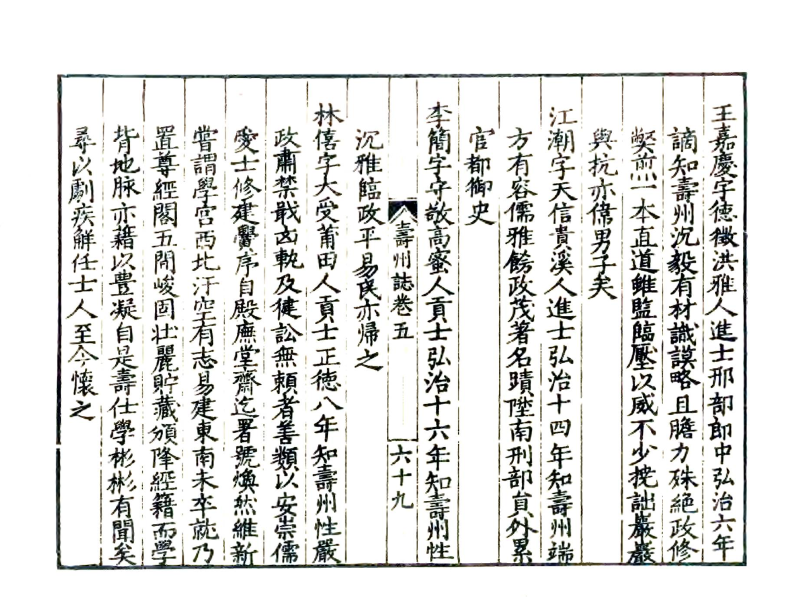 王嘉慶字德徵洪雅人進士刑部郎中弘治六年
謫知壽州沉毅有材識謨略且膽力殊絕政修
獘煎一本直道雖監臨壓以威不少挠詘巖巖
與抗亦偉男子矣
江潮字天信貴溪人進士弘治十四年知壽州端
方有容儒雅餙政茂著名蹟陞南刑部貟外累
官都御史
李簡字守敬高蜜人貢士弘治十六年知壽州性
壽州誌卷五
六十九
沉雅臨政平易民亦歸之
林僖字大受莆田人貢士正德八年知壽州性嚴
政肅禁戢凶軌及徤訟無頼者善類以安崇儒
愛士修建黌序自殿廡堂齋迄署號煥然維新
嘗謂學宫西北汙空有志易建東南未卒就乃
置尊經閣五間峻固壮麗貯藏頒降經籍而學
背地脉亦藉以豊凝自是壽仕學彬彬有聞矣
尋以劇疾觧任士人至今懷之